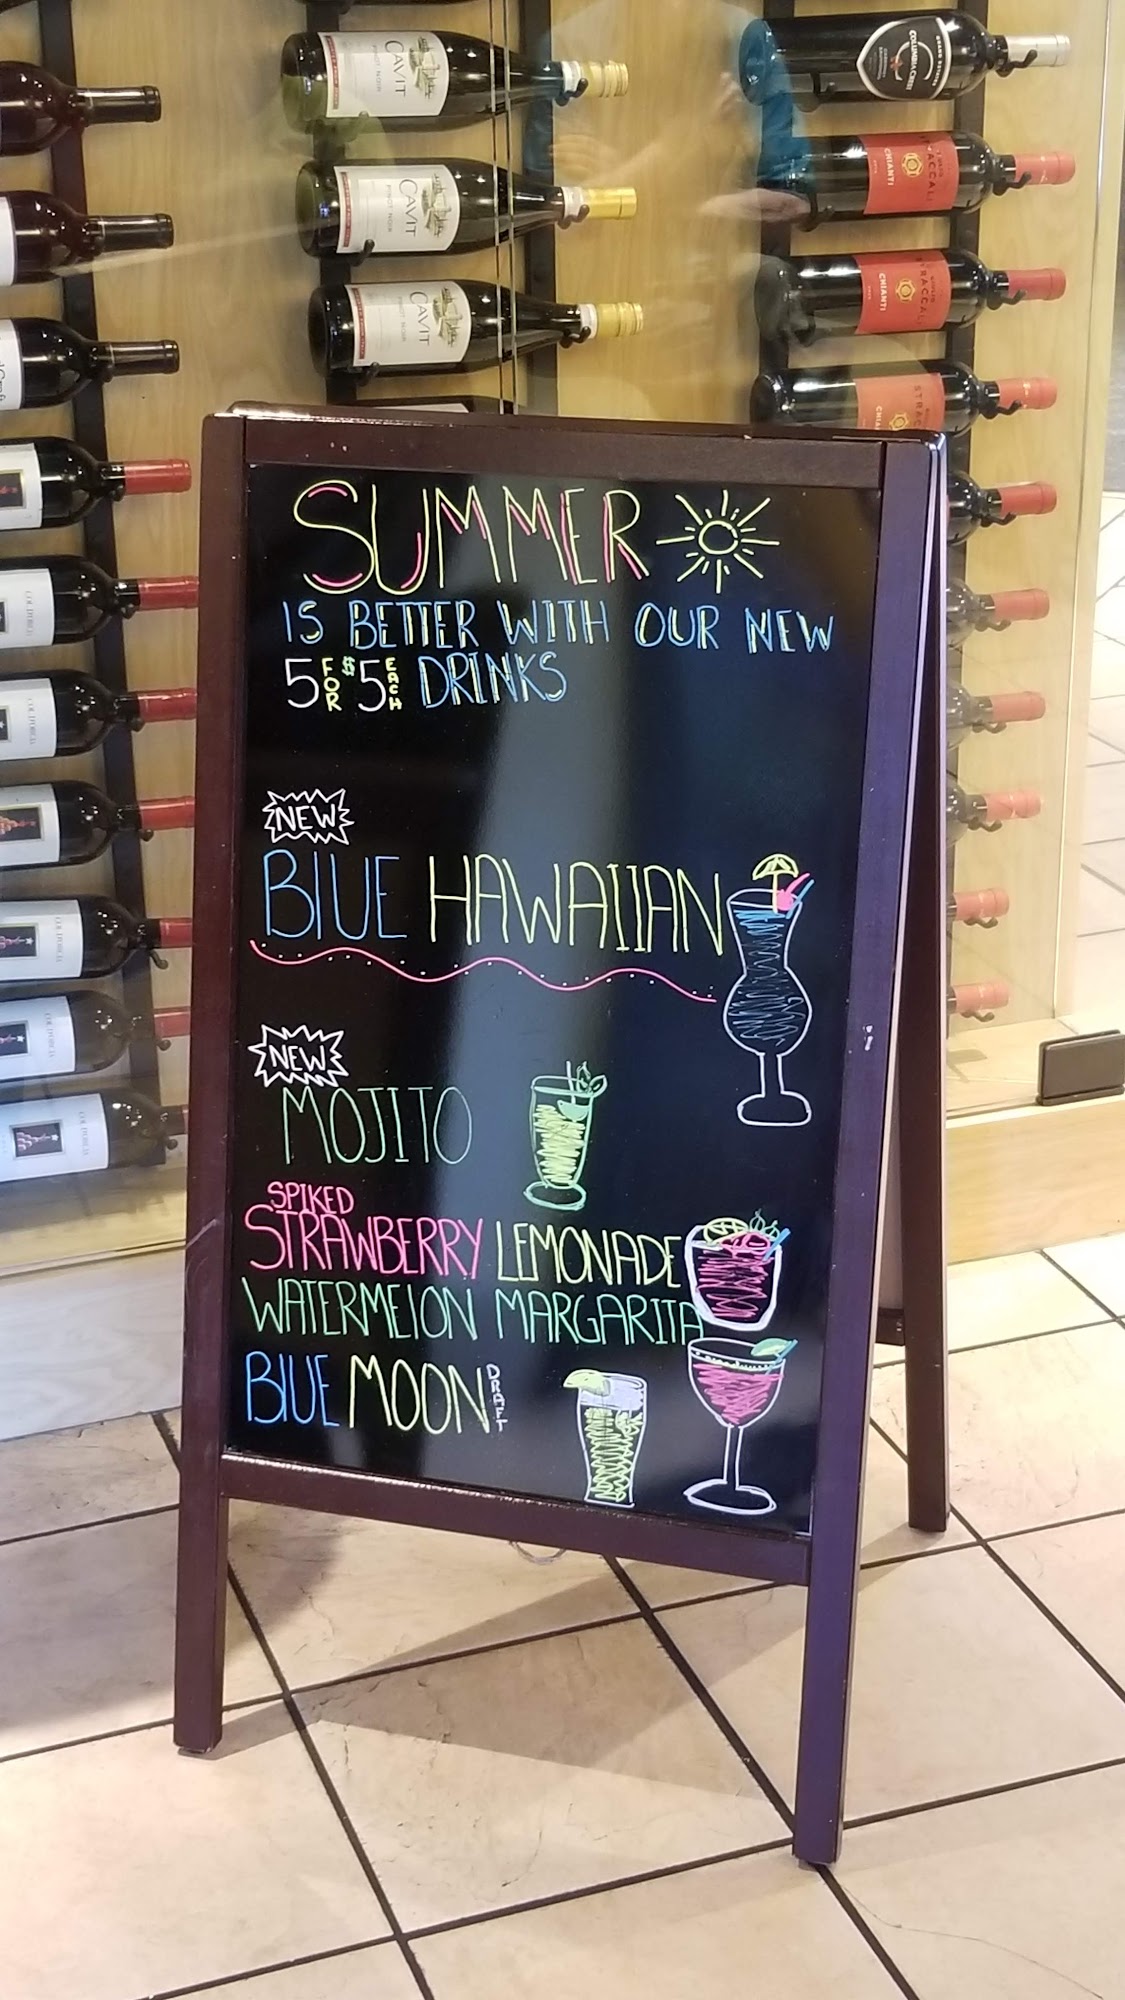 CAVIT
PINOT NOIR
CAVIT
PINOT NOIR
CAVIT
PINOT NOIR
COLUMBIA CREST
CHIANTI
STRACCALI
CHIANTI
STRACCALI
CHIANTI
SUMMER
IS BETTER WITH OUR NEW
5 FOR $5 EACH DRINKS
NEW
BLUE HAWAIIAN
NEW
MOJITO
SPIKED
STRAWBERRY LEMONADE
WATERMELON MARGARITA
BLUE MOON DRAFT
COL D'ORCIA
COL D'ORCIA
COL D'ORCIA
COL D'ORCIA
COL D'ORCIA